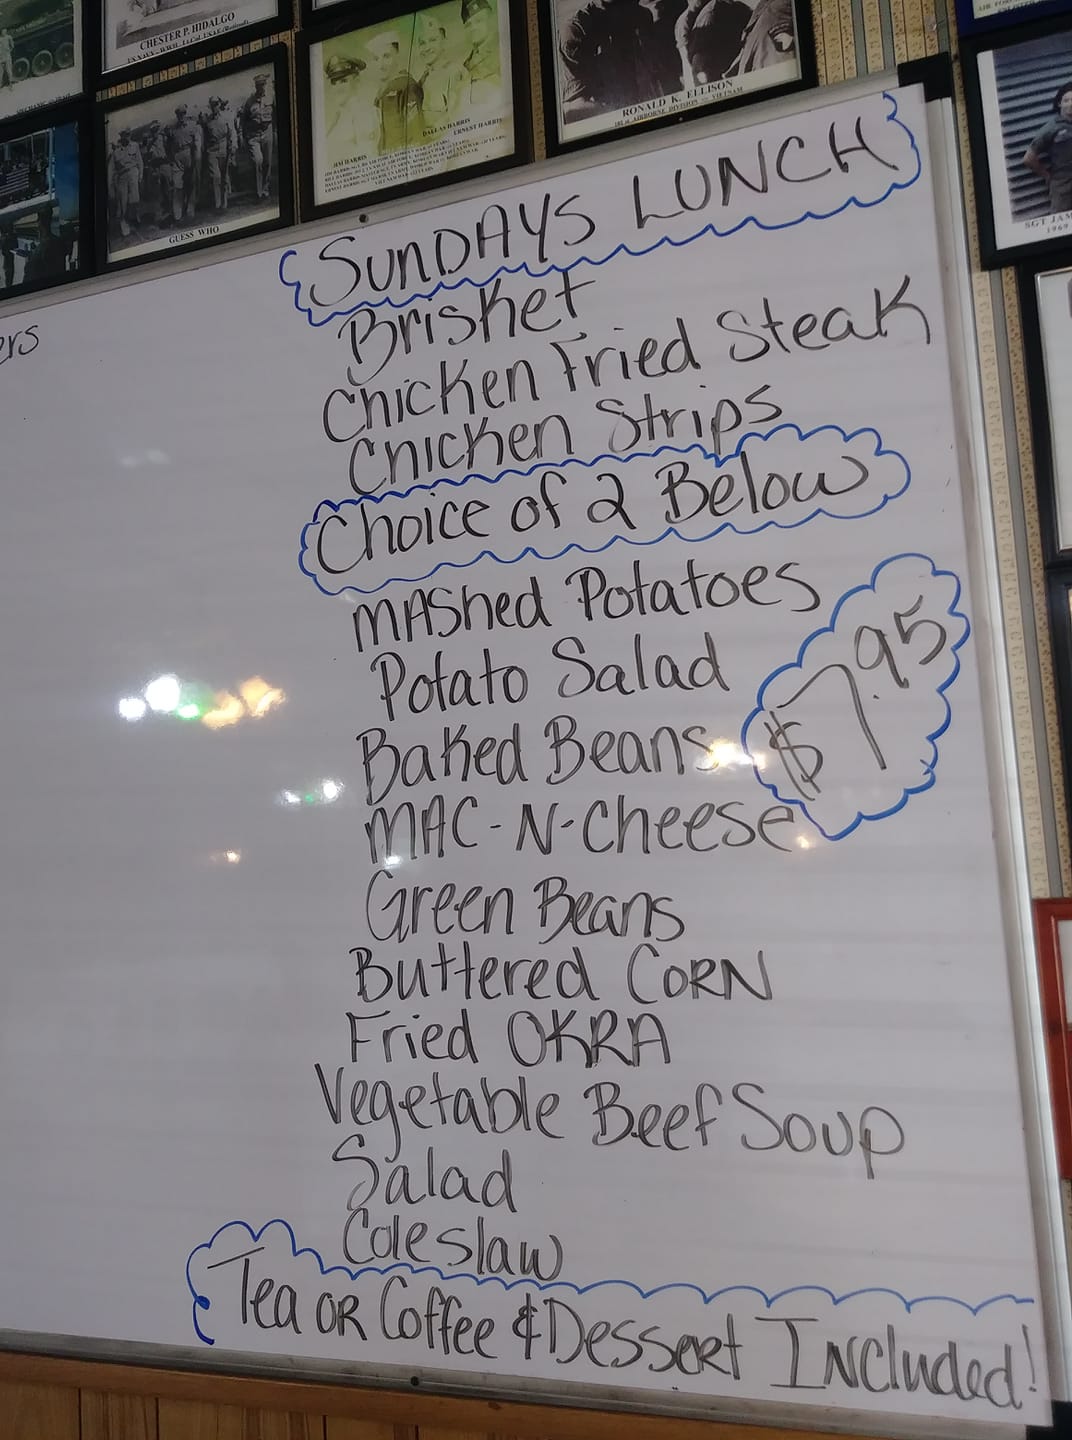 CHESTER P. HIDALGO
GUESS WHO
JIM HARRIS
DALLAS HARRIS
ERNEST HARRIS
RONALD K. ELLISON
101st AIRBORNE DIVISION — VIETNAM
SGT JAM
1969
ers
SUNDAYS LUNCH
Brisket
Chicken Fried Steak
Chicken Strips
Choice of 2 Below
MAShed Potatoes
Potato Salad
$7.95
Baked Beans
MAC-N-Cheese
Green Beans
Buttered CORN
Fried OKRA
Vegetable Beef Soup
Salad
Coleslaw
Tea OR Coffee & Dessert Included!